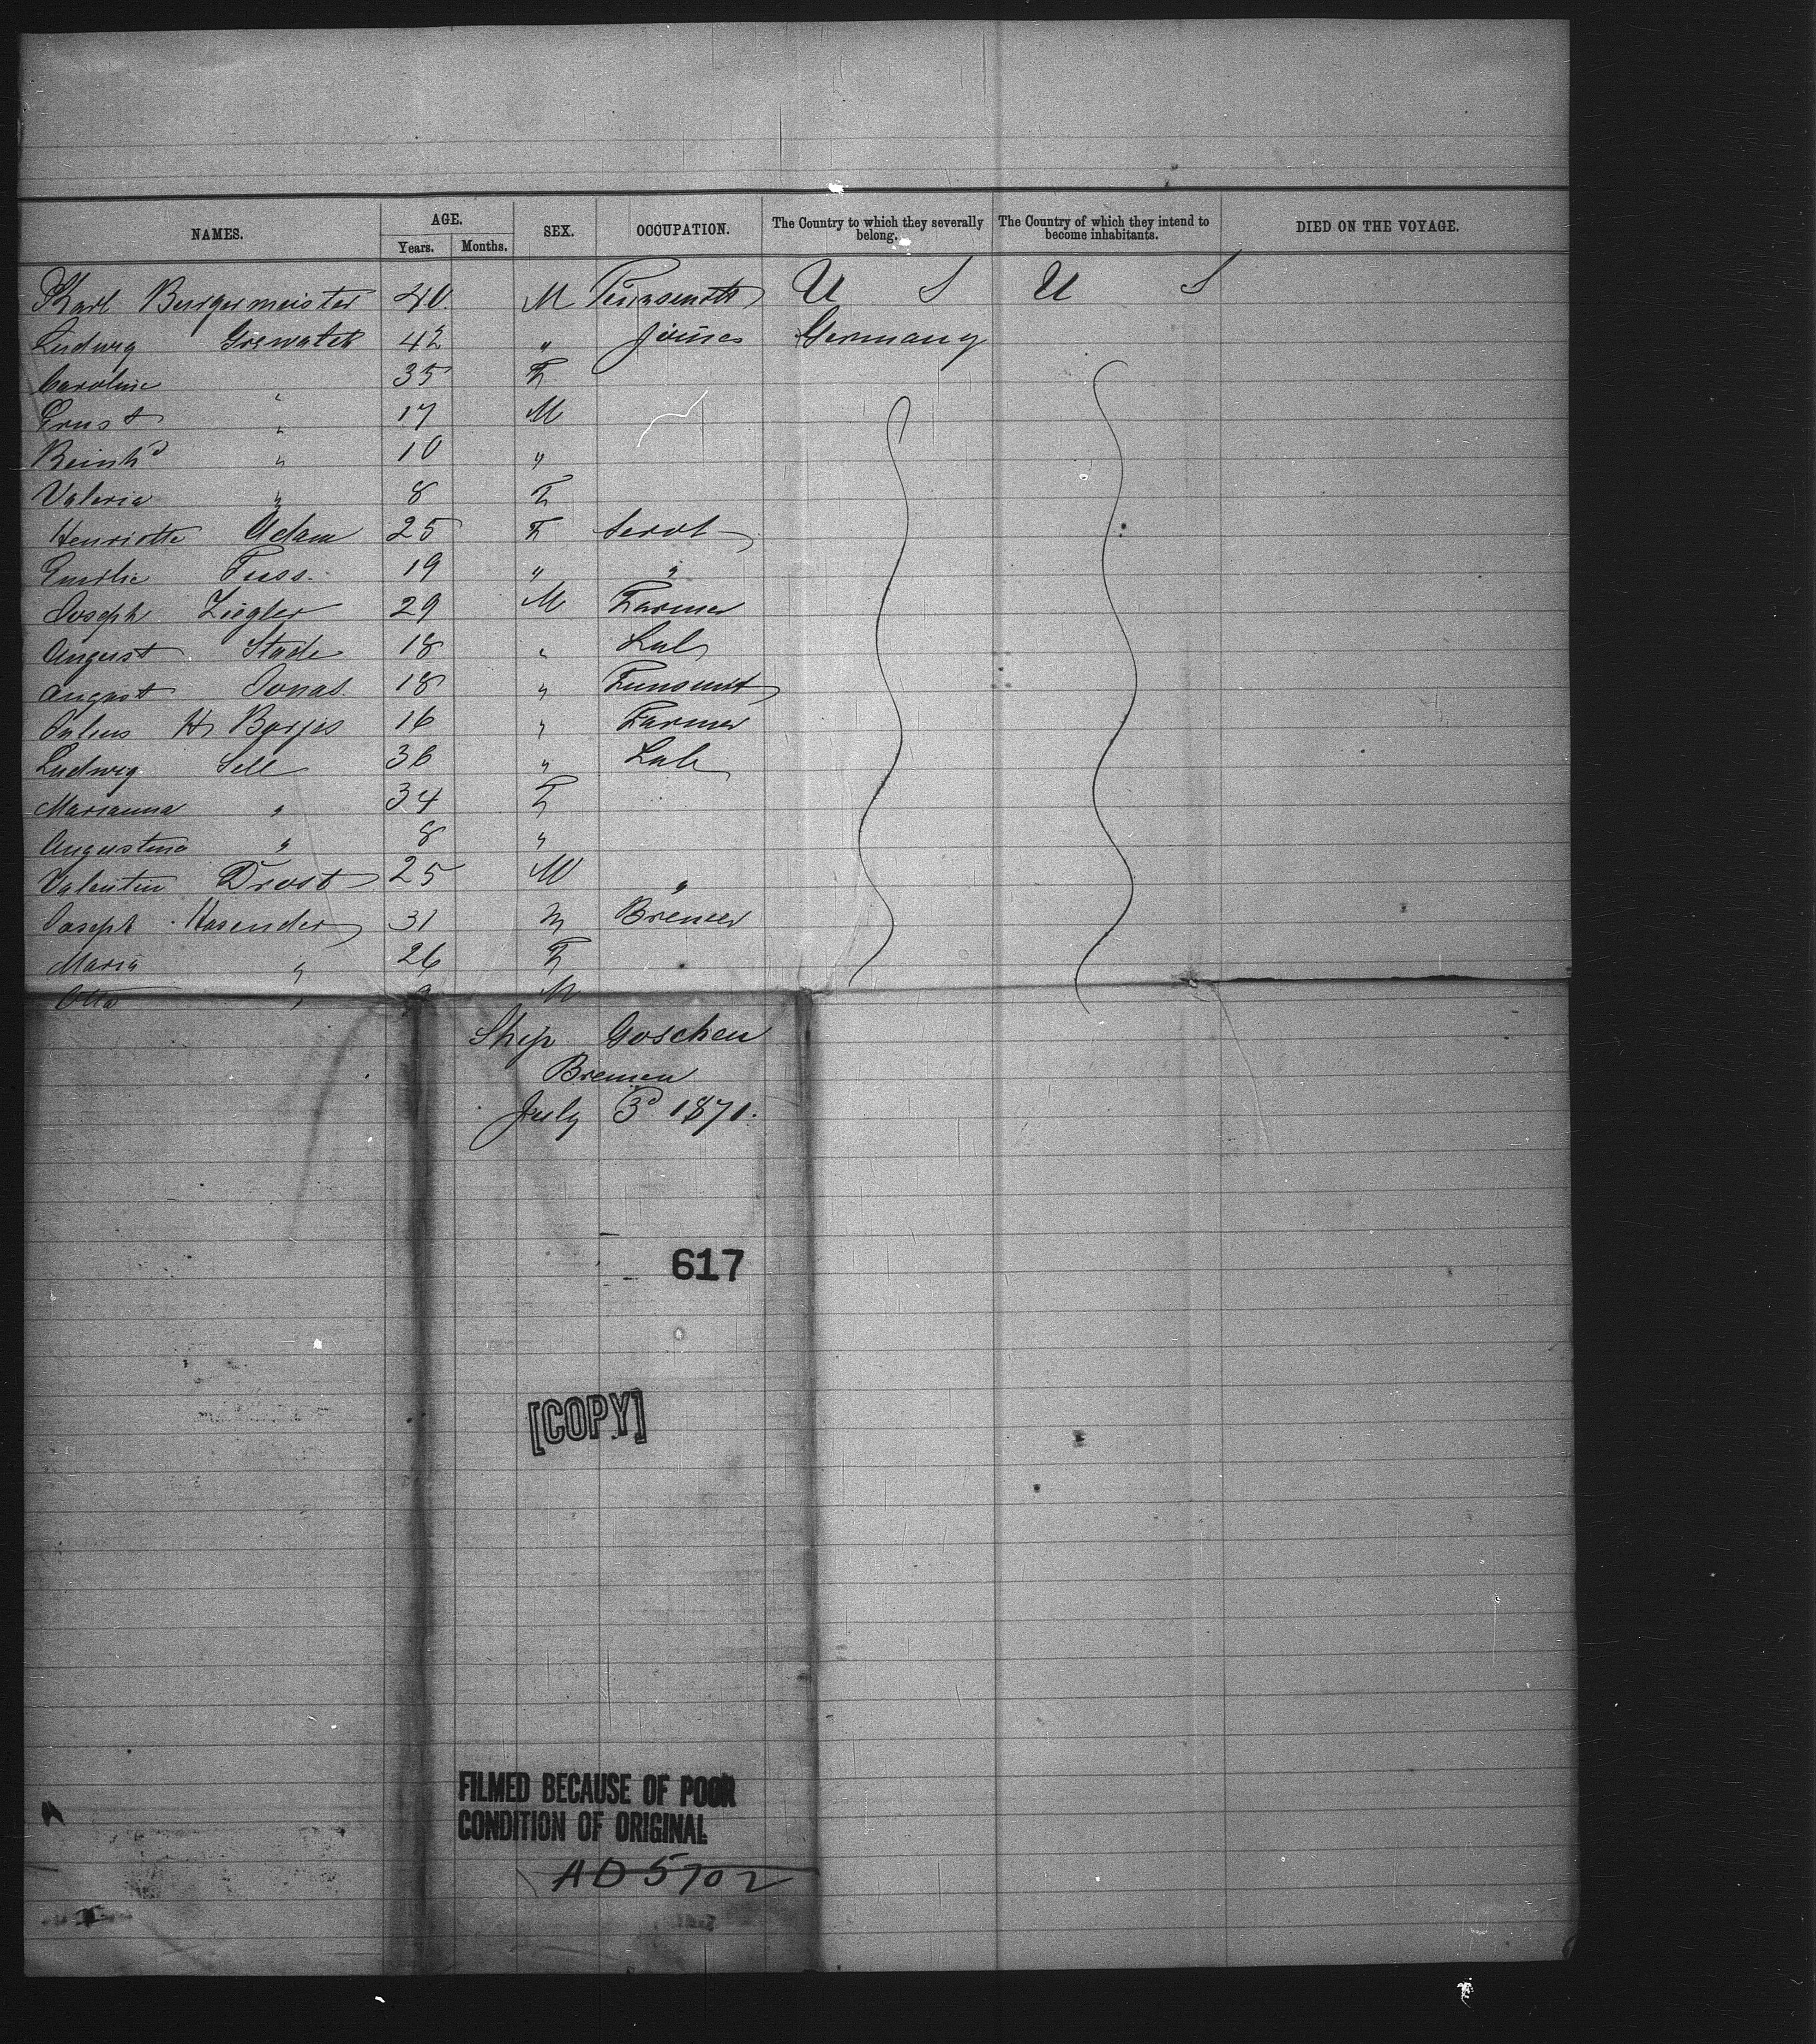 NAMES. AGE. SEX. OCCUPATION. The Country to which they severally belong. The Country of which they intend to become inhabitants. DIED ON THE VOYAGE.
Years. Months.
Karl Burgermeister 40 M U S U S
Ludwig 42 " Germany
Caroline " 35 F
Ernst " 17 M
Reinhd " 10 "
Valeria " 8 F
Henriette Adam 25 F Servt
Emilie Fuss. 19 " "
Joseph Ziegler 29 M Farmer
August Stade 18 " Lab
August Jonas 18 "
Julius H Borjes 16 " Farmer
Ludwig Sell 36 " Lab
Marianna " 34 F
Augustina " 8 "
Valentin Drost 25 M "
Joseph Hasender 31 M Brewer
Maria " 26 F
Otto " 9 M
Ship Goschen
Bremen
July 3d 1871.
617
[COPY]
FILMED BECAUSE OF POOR
CONDITION OF ORIGINAL
AD 5702